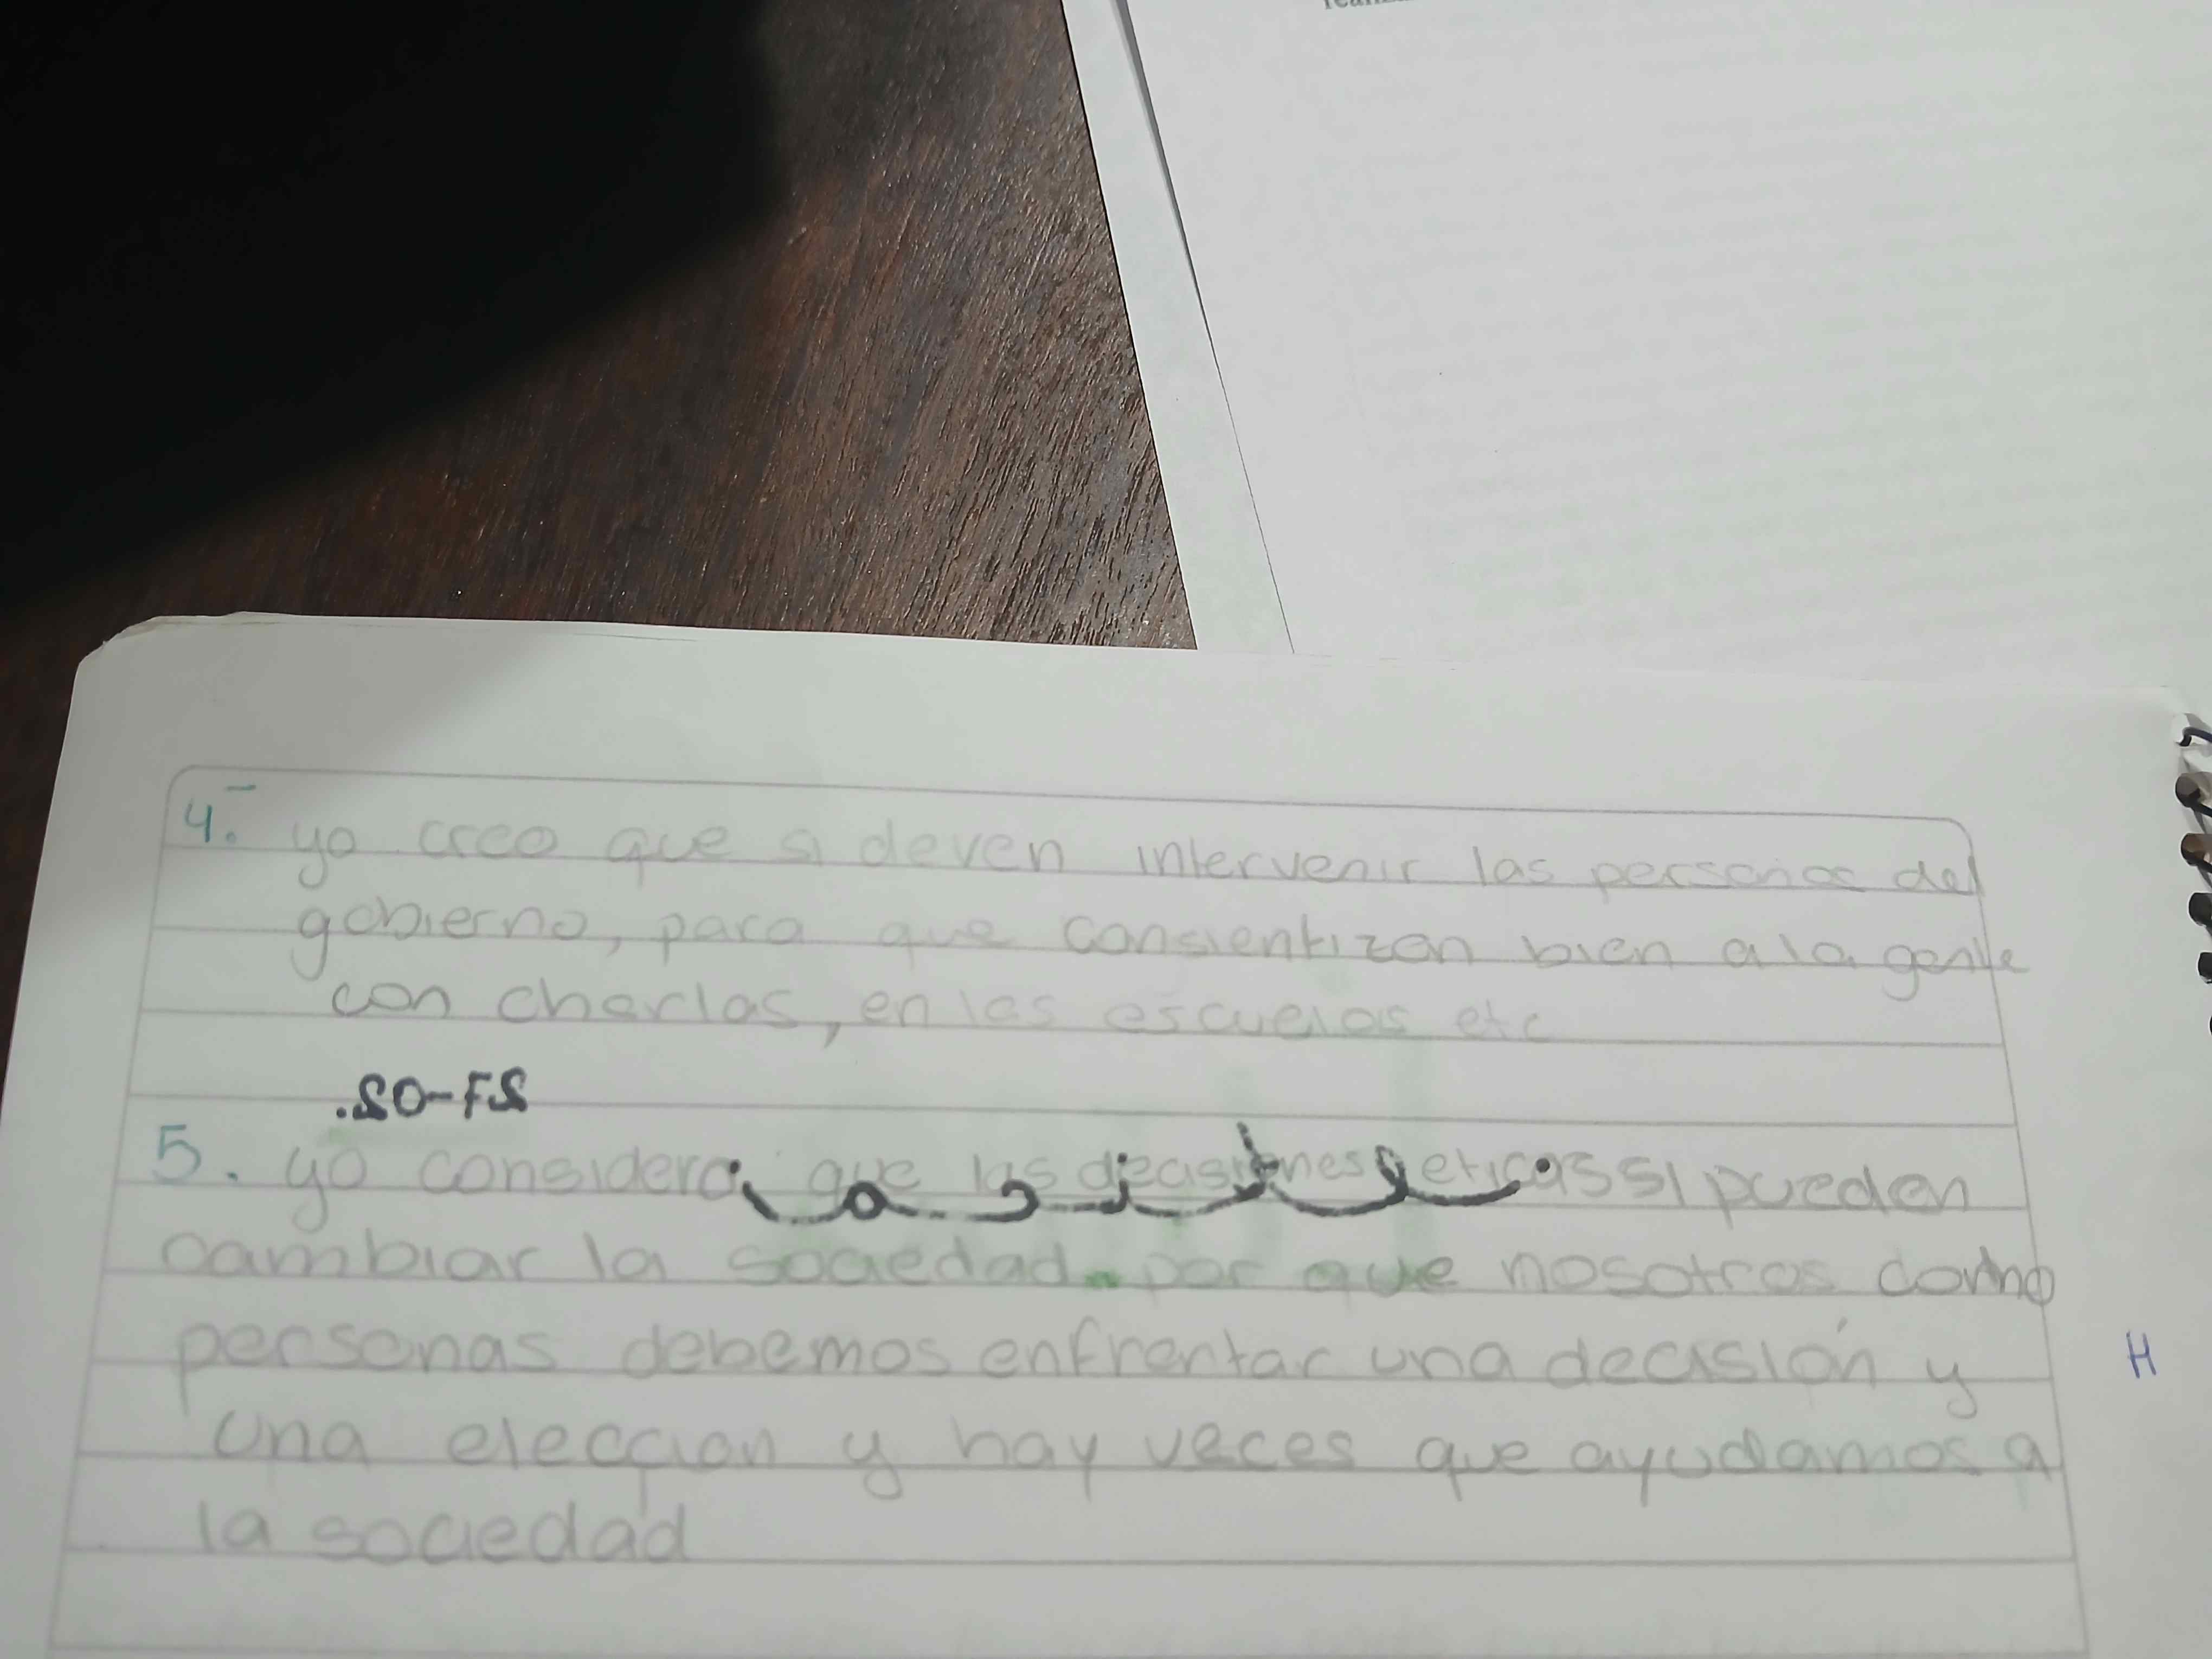 4. yo creo que si deven intervenir las personas del
gobierno, para que consientizan bien a la gente
con charlas, en las escuelas etc
27-02.
5. yo considero que las decisiones eticas si pueden
cambiar la sociedad. por que nosotros como
personas debemos enfrentar una decisión y
una eleccion y hay veces que ayudamos a
la sociedad
H